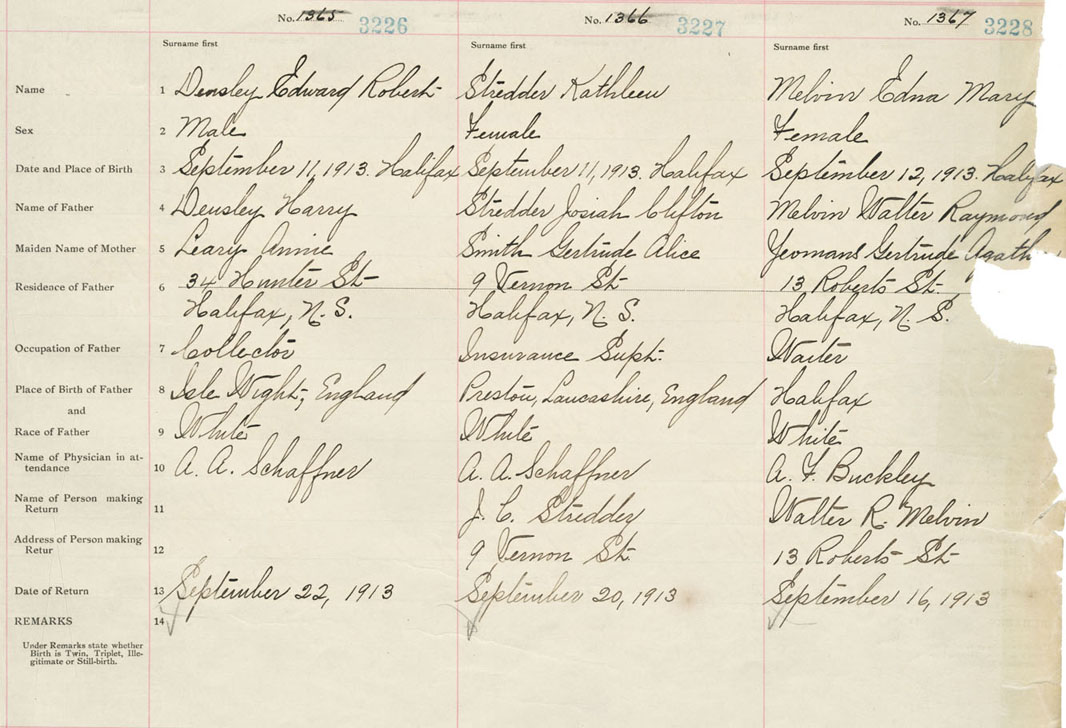 No. 1365 3226 No. 1366 3227 No. 1367 3228
Surname first Surname first Surname first
Name 1 Densley Edward Robert Stredder Kathleen Melvin Edna Mary
Sex 2 Male Female Female
Date and Place of Birth 3 September 11, 1913. Halifax September 11, 1913. Halifax September 12, 1913. Halifax
Name of Father 4 Densley Harry Stredder Josiah Clifton Melvin Walter Raymond
Maiden Name of Mother 5 Leary Annie Smith Gertrude Alice Yeomans Gertrude Agath
Residence of Father 6 34 Hunter St 9 Vernon St. 13 Roberts St.
Halifax, N. S. Halifax, N. S. Halifax, N. S.
Occupation of Father 7 Collector Insurance Supt. Waiter
Place of Birth of Father 8 Isle Wight, England Preston, Lancashire, England Halifax
and
Race of Father 9 White White White
Name of Physician in at-
tendance 10 A. A. Schaffner A. A. Schaffner A. F. Buckley
Name of Person making
Return 11 J. C. Stredder Walter R. Melvin
Address of Person making
Retur 12 9 Vernon St. 13 Roberts St
Date of Return 13 September 22, 1913 September 20, 1913 September 16, 1913
REMARKS 14
Under Remarks state whether
Birth is Twin, Triplet, Ille-
gitimate or Still-birth.